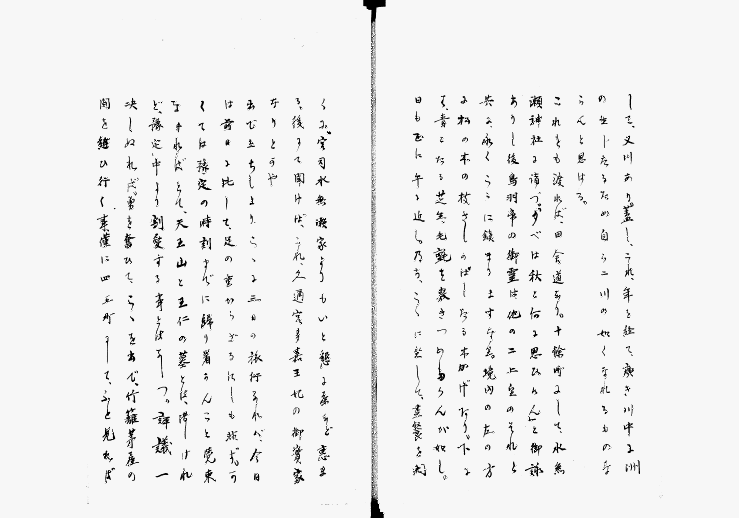 して、又川あり。蓋し、これ、年を経て、廣き川中に洲
の生じたるため自ら二川の如くなれるものな
らんと思ける。
これをも渡れば、田舎道なり。十餘町にして、水無
瀬神社に詣づ。夕べは秋と何に思ひけんと御詠
ありし後鳥羽帝の御霊は他の二上皇のそれと
共に、永くこゝに鎮まりますなる。境内の左の方
に松の木の枝さしのばしたる木かげたり。下に
は、青々たる芝生、毛氈を敷きつめたらんが如し。
日も正に午に近し。乃ち、こゝに坐して、晝餐を
くふ。宮司水無瀬家よりもいと懇に茶など恵ま
る。後にて聞けば、これ、久邇宮多嘉王妃の御實家
なりとかや
出で立ちしより、こゝに三日の旅行なれば、今日
は前日に比して、足の重からざるにしも非ず。か
くては豫定の時刻までに歸り着かんこと覺束
なければとて、天王山と王仁の墓とは、惜しけれ
ど、豫定中より割愛する事とはなしつ。評議一
決しぬれば、勇を奮ひて、こゝを出で、竹籬茅屋の
間を縫ひ行く事僅に四五町にして、ふと見れば